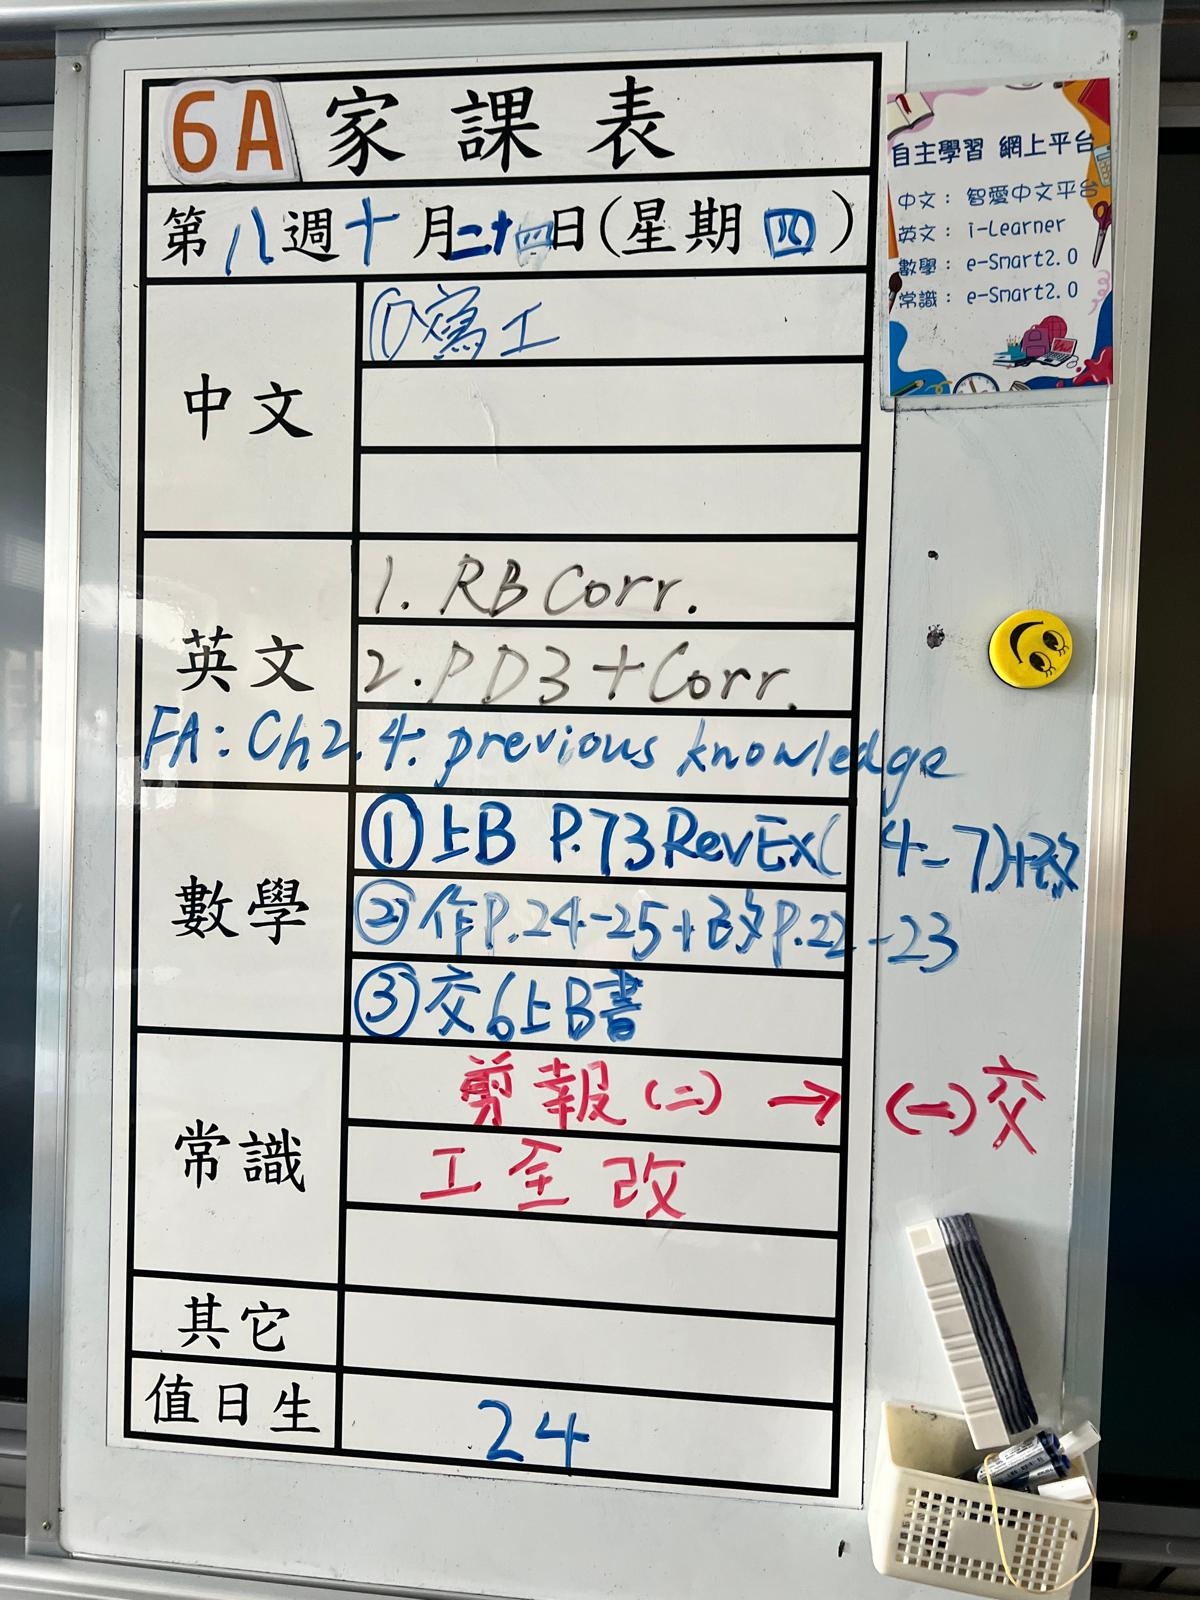 6A 家課表
第八週十月二十四日(星期四)
中文
①寫工
英文
1. RB Corr.
2. PD3 + Corr.
FA: Ch2.4: previous knowledge
數學
①上B P.73RevEx(4-7)+改
②作P.24-25+改P.22-23
③交6上B書
常識
剪報(二) → (一)交
工至改
其它
值日生
24
自主學習 網上平台
中文: 智愛中文平台
英文: i-Learner
數學: e-Smart2.0
常識: e-Smart2.0